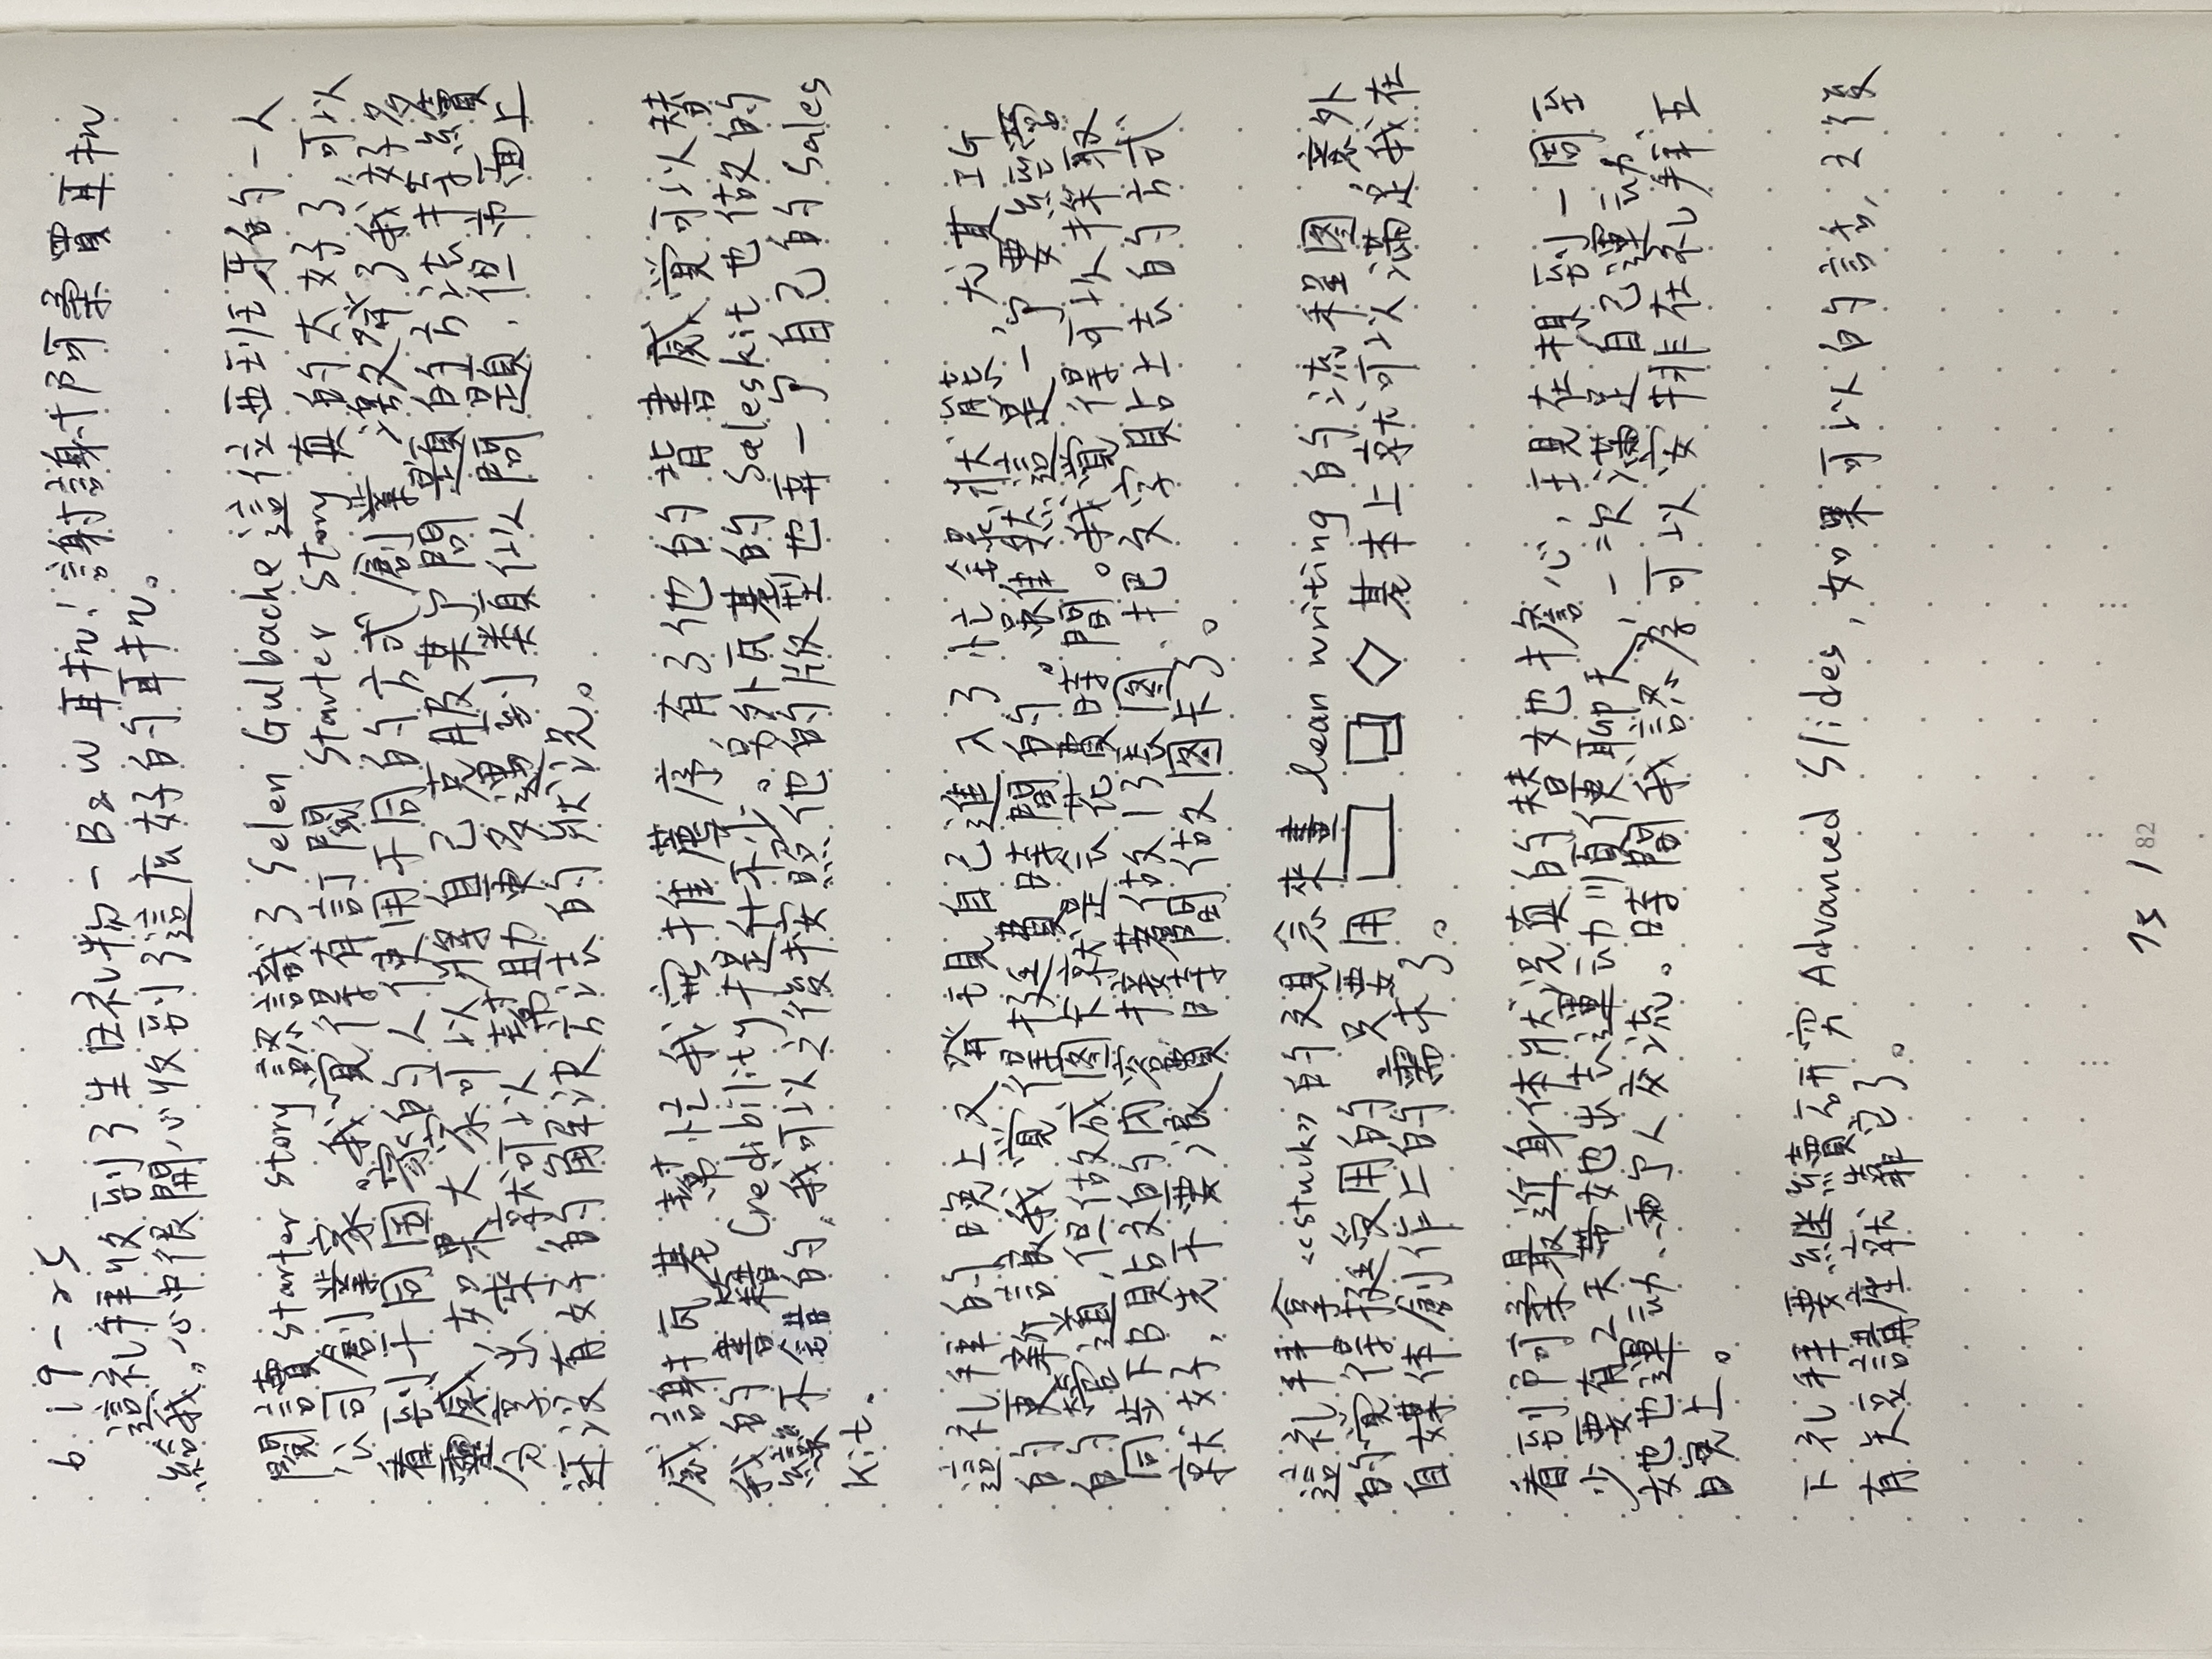 6.19-25
這礼拜收到了生日礼物-B&W耳机!謝謝阿柔買耳机
給我。心中很開心收到了這広好的耳机。
閱讀 starter story 認識了 Selen Gulbache 這位西班牙的一人
公司創業家。我覚得有訂閱 Starter Story 真的太好了,可以
看到不同国家的人使用不同的方式創業,激発了我好多
靈感,如果大家可以將自己克服某个問題的方法持續
分享出來,就可以幫助更多遇到類似問題,但市面上
还沒有好的解決方法的狀況。
感謝瓦基幫忙我寫推薦序,有了他的背書感覚可以替
我的書籍 Credibility 提升不少。另外瓦基的 Saleskit 也做的
蠻不錯的,我可以之後按照他的版型也弄一个自己的 Sales
kit.
這礼拜的晚上又発現自己進入了忙碌狀態,尤其IG
的更新讓我覚得挺費時間的。雖然這是一个要經營
的管道,但做成图卡就是会花費時間。我覚得可以採取
同步FB貼文的內容,接著做1張图、把文字貼上去的方式
就好,先不要浪費時間做图卡了。
這礼拜拿《stuck》的观念來畫 lean writing 的流程图,意外
的覚得挺受用的。只要用 基本上就可以滿足我在
自媒体創作上的需求了。
看到阿柔最近身体狀況真的替她擔心,現在想到一周至
少要有2天帶她出去運动順便聊天,一次滿足自己運动、
她也運动、兩个人交流。時間我認為可以安排在礼拜五
晚上。
下礼拜要継續研究 Advanced Slides,如果可以的話,之後
有短講座就靠它了。
75 / 82